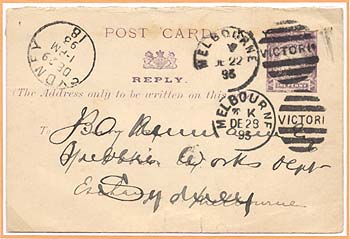 POST CARD
REPLY.
The Address only to be written on this
SYDNEY
DE 29
1-PM
95
18
MELBOURNE
DE 22
95
VICTORIA
MELBOURNE
K
DE 28
95
VICTORI
ONE PENNY
To
Public Works Dept
Sydney
Melbourne